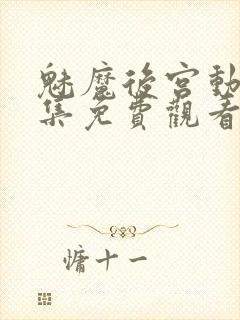 魅魔後宮動
集免費觀看
慵十一